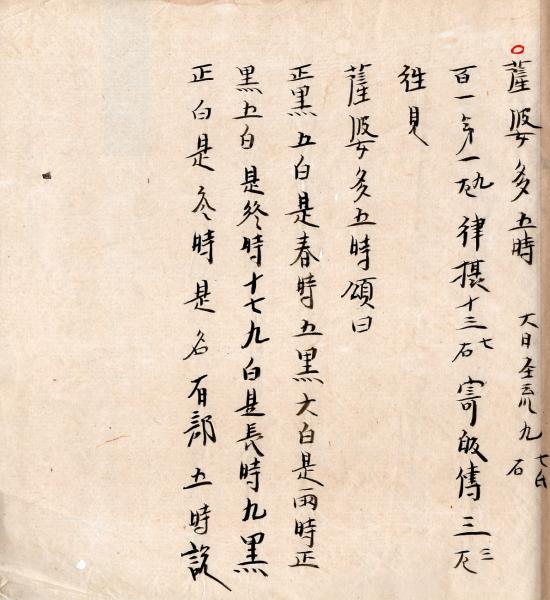 ○薩婆多五時 大日経疏九 七右
百一第一九 律摂十三七右 寄帰傳三三
往見
薩婆多五時頌曰
正黒五白是春時五黒六白是雨時正
黒五白是終時十七九白是長時九黒
正白是冬時是名有部五時説